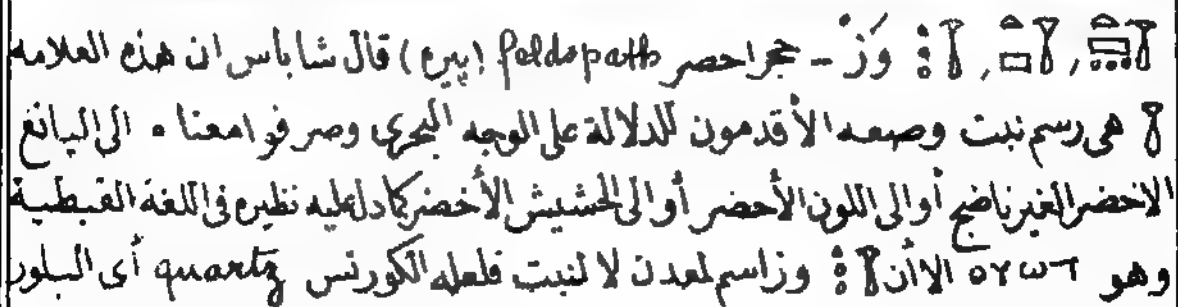 𓇅 , 𓇅 , 𓇅 : وَزْ - حجر احصر feldspath (بيره) قال شاباس ان هذه العلامه
𓇅 هى رسم نبت وصعه الأقدمون للدلالة على الوجه البحرى وصرفوا معناه الى اليانع
الاخضر الغير ناضج أو الى اللون الأحضر أو الى الحشيش الأخضر كما دل عليه نظيره فى اللغة القبطية
وهو ⲟⲩⲱⲧ الا أن 𓇅 وز اسم لمعدن لا لنبت فلعله الكورتس quartz أى البلور